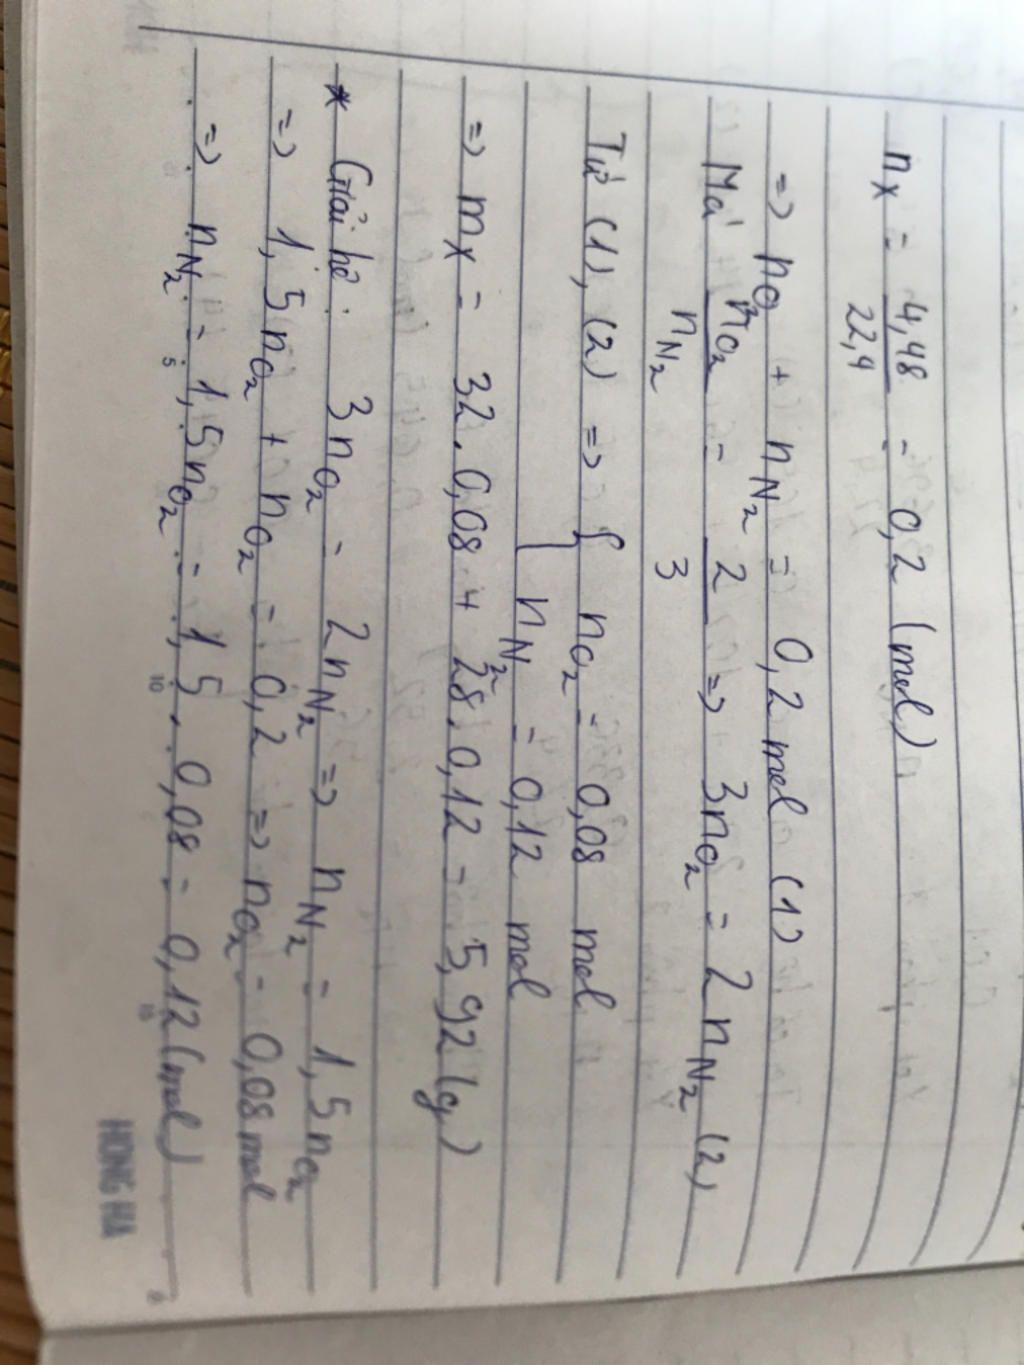 nX = 4,48/22,4 = 0,2 (mol)
=> nO2 + nN2 = 0,2 mol (1)
Mà nO2/nN2 = 2/3 => 3nO2 = 2nN2 (2)
Từ (1), (2) => { nO2 = 0,08 mol
nN2 = 0,12 mol
=> mX = 32.0,08 + 28.0,12 = 5,92 (g)
* Giải hệ: 3nO2 = 2nN2 => nN2 = 1,5nO2
=> 1,5nO2 + nO2 = 0,2 => nO2 = 0,08 mol
=> nN2 = 1,5nO2 = 1,5.0,08 = 0,12 (mol)
5 10 15
HONG HA